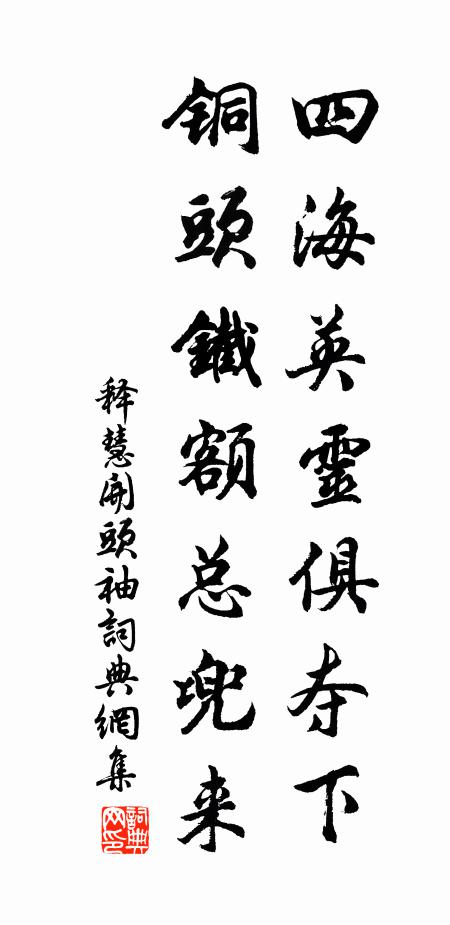 四海英靈俱夺下
銅頭鐵額总兜来
释慧開頭袖詞典網集
詞典网印